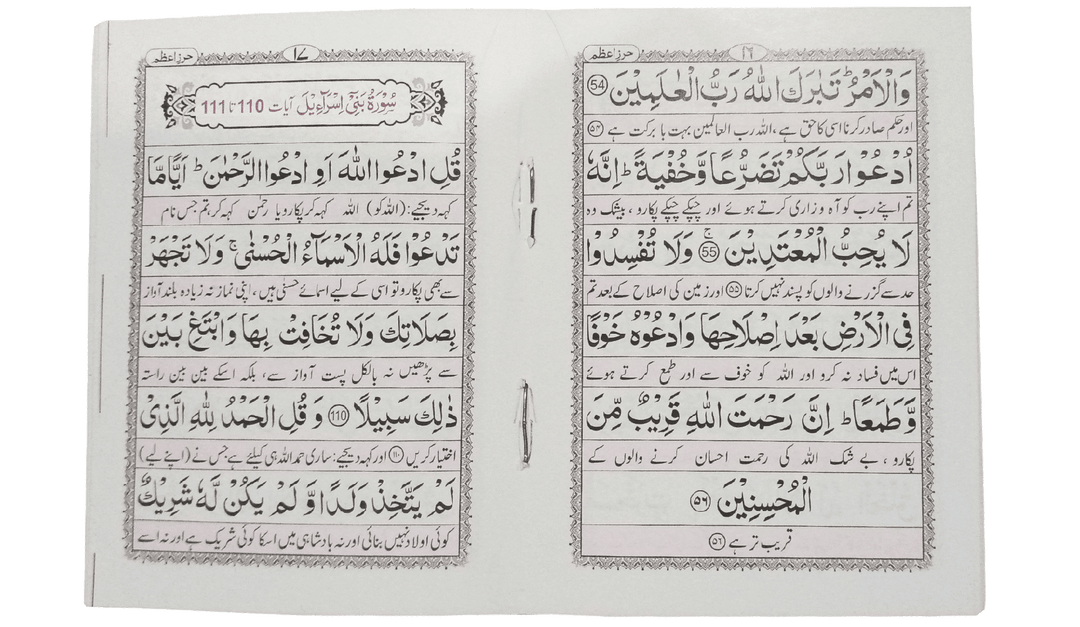 حرزِ اعظم
١٦
وَالْاَمْرُ ؕ تَبٰرَكَ اللّٰهُ رَبُّ الْعٰلَمِيْنَ 54
اور حکم صادر کرنا اسی کا حق ہے ، اللہ رب العالمین بہت با برکت ہے ۵۴
اُدْعُوْا رَبَّكُمْ تَضَرُّعًا وَّخُفْيَةً ؕ اِنَّهٗ
تم اپنے رب کو آہ و زاری کرتے ہوئے اور چپکے چپکے پکارو ، بیشک وہ
لَا يُحِبُّ الْمُعْتَدِيْنَ ۚ 55 وَلَا تُفْسِدُوْا
حد سے گزرنے والوں کو پسند نہیں کرتا ۵۵ اور زمین کی اصلاح کے بعد تم
فِى الْاَرْضِ بَعْدَ اِصْلَاحِهَا وَادْعُوْهُ خَوْفًا
اس میں فساد نہ کرو اور اللہ کو خوف سے اور طمع کرتے ہوئے
وَّطَمَعًا ؕ اِنَّ رَحْمَتَ اللّٰهِ قَرِيْبٌ مِّنَ
پکارو ، بے شک اللہ کی رحمت احسان کرنے والوں کے
الْمُحْسِنِيْنَ ۵۶
قریب تر ہے ۵۶
حرزِ اعظم
١٧
سُوْرَةُ بَنِىْٓ اِسْرَآءِيْلَ آیات 110 تا 111
قُلِ ادْعُوا اللّٰهَ اَوِ ادْعُوا الرَّحْمٰنَ ؕ اَيًّا مَّا
کہہ دیجیے : (اللہ کو) اللہ کہہ کر پکارو یا رحمٰن کہہ کر تم جس نام
تَدْعُوْا فَلَهُ الْاَسْمَآءُ الْحُسْنٰى ۚ وَلَا تَجْهَرْ
سے بھی پکارو تو اسی کے لیے اسمائے حسنٰی ہیں ، اپنی نماز نہ زیادہ بلند آواز
بِصَلَاتِكَ وَلَا تُخَافِتْ بِهَا وَابْتَغِ بَيْنَ
سے پڑھیں نہ بالکل پست آواز سے ، بلکہ اسکے بین بین راستہ
ذٰلِكَ سَبِيْلًا 110 وَقُلِ الْحَمْدُ لِلّٰهِ الَّذِىْ
اختیار کریں ۱۱۰ اور کہہ دیجیے : ساری حمد اللہ ہی کیلئے ہے جس نے (اپنے لیے)
لَمْ يَتَّخِذْ وَلَدًا وَّلَمْ يَكُنْ لَّهٗ شَرِيْكٌ
کوئی اولاد نہیں بنائی اور نہ بادشاہی میں اسکا کوئی شریک ہے اور نہ اسے